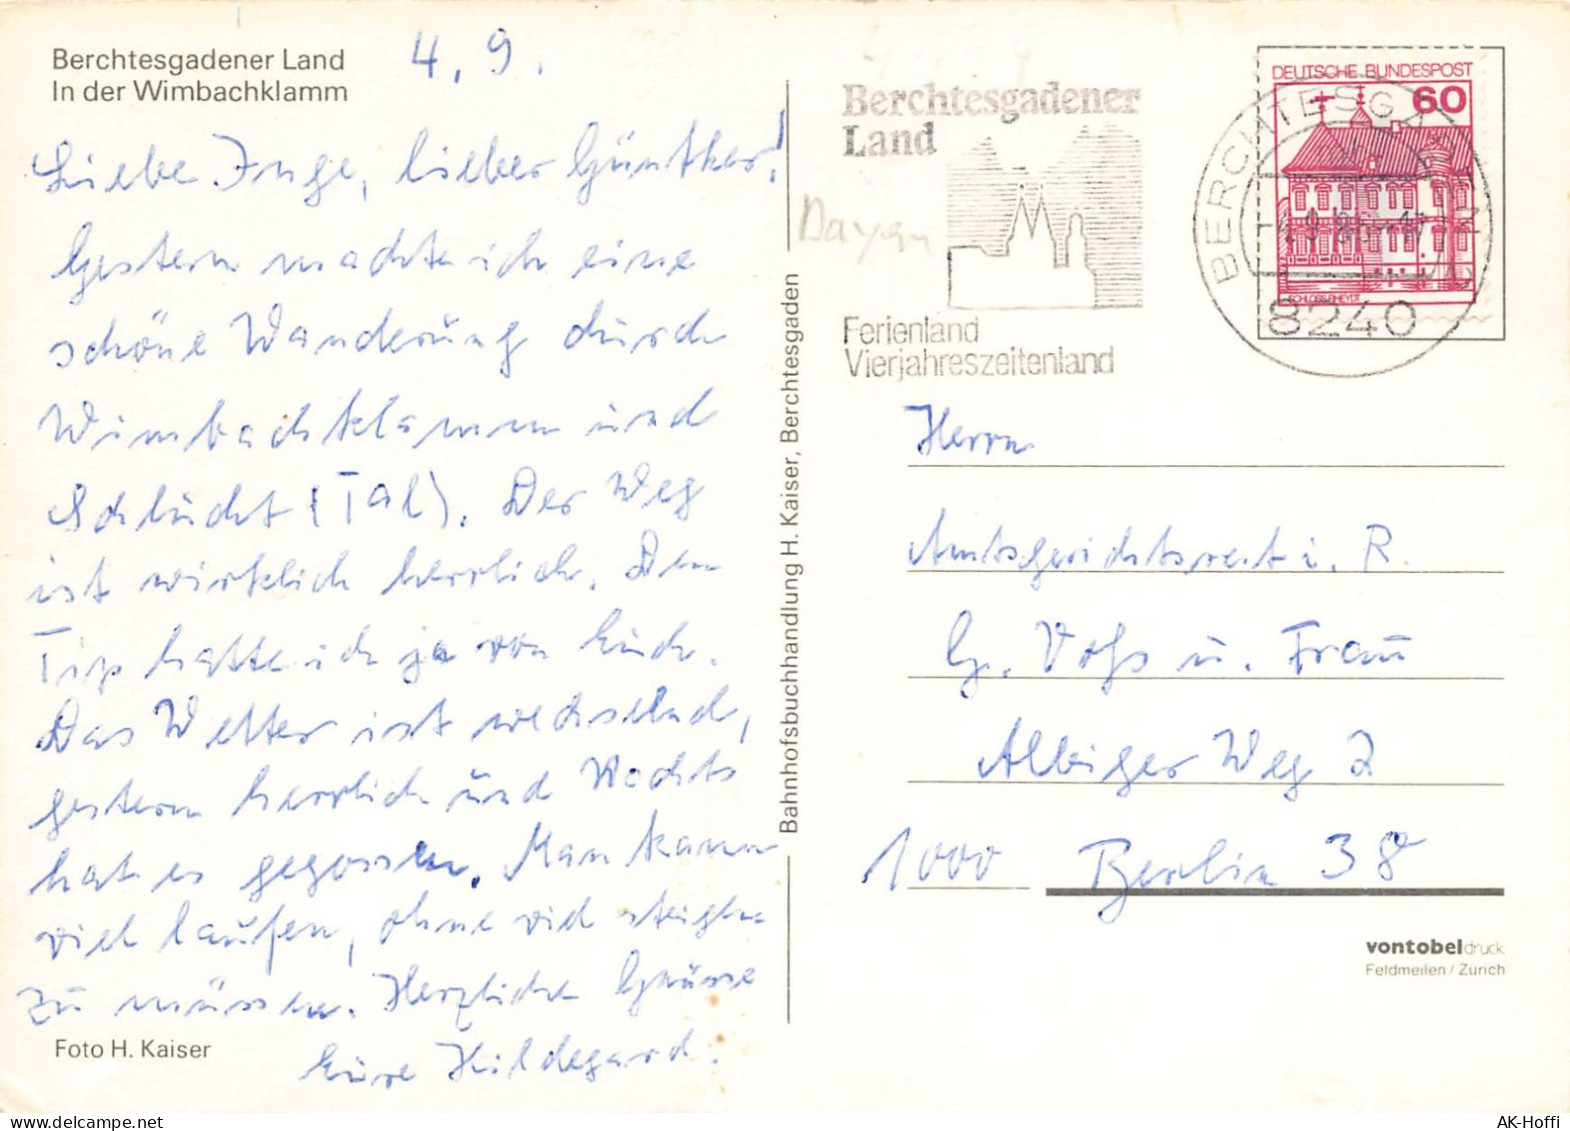 Berchtesgadener Land
In der Wimbachklamm
4.9.
Liebe Inge, lieber Günther!
Gestern machte ich eine
schöne Wanderung durch
Wimbachklamm und
Schlucht (Tal). Der Weg
ist wirklich herrlich. Den
Tip hatte ich ja von Euch.
Das Wetter ist wechselnd,
gestern herrlich und Nachts
hat es gegossen. Man kann
viel laufen, ohne viel steigen
zu müssen. Herzliche Grüsse
Eure Hildegard.
Foto H. Kaiser
Bahnhofsbuchhandlung H. Kaiser, Berchtesgaden
Berchtesgadener
Land
Bayern
Ferienland
Vierjahreszeitenland
DEUTSCHE BUNDESPOST
60
SCHLOSS RHEYDT
BERCHTESGADEN
8240
Herrn
Amtsgerichtsrat i. R.
G. Voßs u. Frau
Albiger Weg 2
1000 Berlin 38
vontobeldruck
Feldmeilen / Zürich
www.delcampe.net
AK-Hoffi